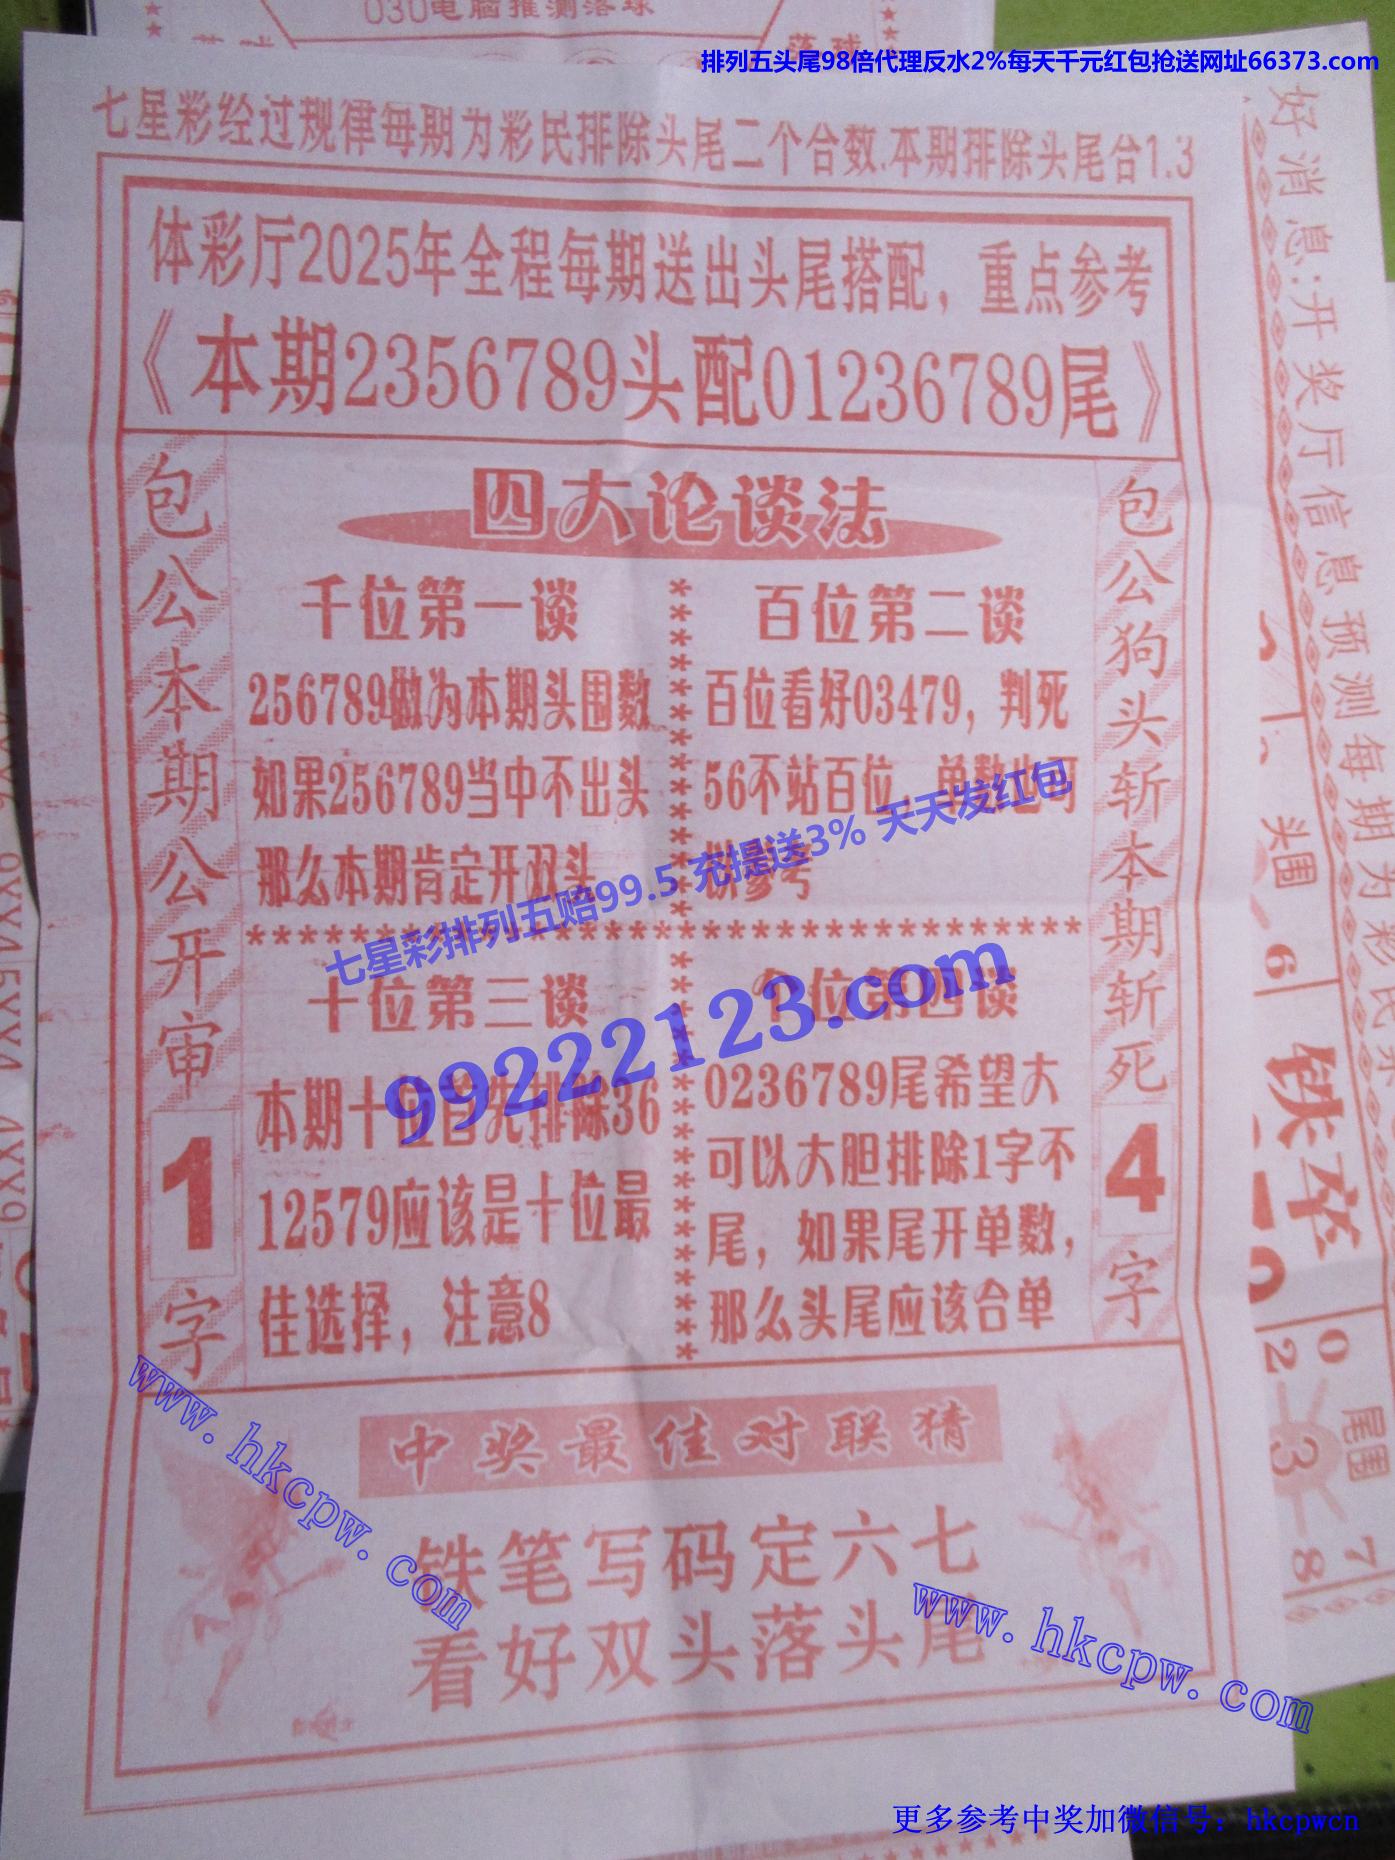 030电脑推测落球
落球
落球
排列五头尾98倍代理反水2%每天千元红包抢送网址66373.com
七星彩经过规律每期为彩民排除头尾二个合数.本期排除头尾合1.3
体彩厅2025年全程每期送出头尾搭配，重点参考
《本期2356789头配01236789尾》
包公本期公开审1字
四大论谈法
千位第一谈
256789做为本期头围数
如果256789当中不出头
那么本期肯定开双头
百位第二谈
百位看好03479，判死
56不站百位，单数也可
参考
七星彩排列五赔99.5 充提送3% 天天发红包
99222123.com
十位第三谈
本期十位首先排除36
12579应该是十位最
佳选择，注意8
个位第四谈
0236789尾希望大
可以大胆排除1字不
尾，如果尾开单数，
那么头尾应该合单
包公狗头斩本期斩死4字
中奖最佳对联猜
铁笔写码定六七
看好双头落头尾
www.hkcpw.com
www.hkcpw.com
好消息:开奖厅信息预测每期为彩民
头围
6
铁卒
0
2
3
尾围
7
8
更多参考中奖加微信号：hkcpwcn